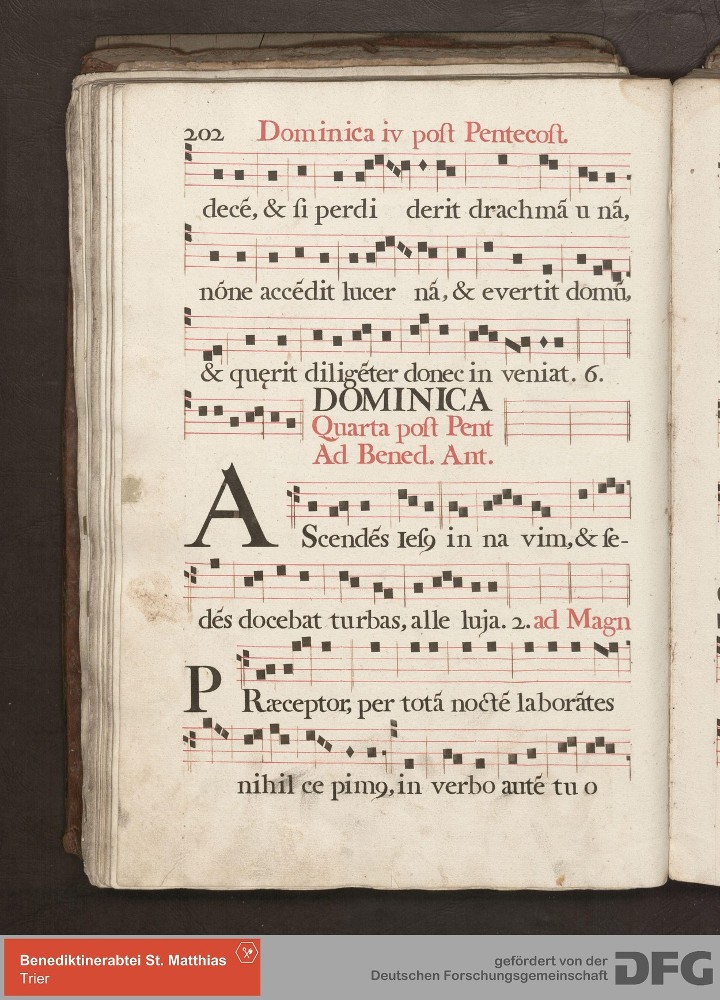 202 Dominica iv poſt Pentecoſt.
decē, & ſi perdi derit drachmā u nā,
nōne accēdit lucer nā, & evertit domū,
& quęrit diligēter donec in veniat. 6.
DOMINICA
Quarta poſt Pent
Ad Bened. Ant.
AScendēs Ieſꝯ in na vim, & ſe-
dēs docebat turbas, alle luja. 2. ad Magn
PRæceptor, per totā noctē laborātes
nihil ce pimꝯ, in verbo autē tu o
Benediktinerabtei St. Matthias
Trier
gefördert von der
Deutschen Forschungsgemeinschaft
DFG